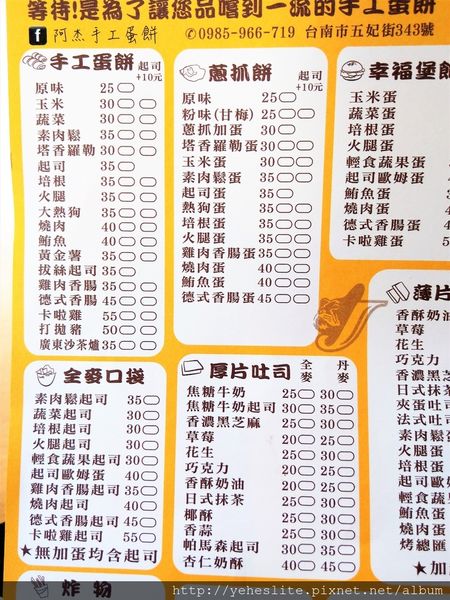 等待!是為了讓您品嚐到一流的手工蛋餅
f 阿杰手工蛋餅 ✆0985-966-719 台南市五妃街343號
手工蛋餅 起司+10元
原味 25
玉米 30
蔬菜 30
素肉鬆 35
塔香羅勒 30
起司 35
培根 35
火腿 35
大熱狗 35
燒肉 40
鮪魚 40
黃金薯 35
拔絲起司 35
雞肉香腸 35
德式香腸 45
卡啦雞 55
打拋豬 50
廣東沙茶爐 35
蔥抓餅 起司+10元
原味 25
粉味(甘梅) 25
蔥抓加蛋 30
塔香羅勒蛋 30
玉米蛋 30
素肉鬆蛋 35
起司蛋 35
熱狗蛋 35
培根蛋 35
火腿蛋 35
雞肉香腸蛋 35
燒肉蛋 40
鮪魚蛋 40
德式香腸蛋 45
幸福堡餅
玉米蛋
蔬菜蛋
培根蛋
火腿蛋
輕食蔬果蛋
起司歐姆蛋
鮪魚蛋
燒肉蛋
德式香腸蛋
卡啦雞蛋
全麥口袋
素肉鬆起司 35
蔬菜起司 30
培根起司 30
火腿起司 30
輕食蔬果起司 30
起司歐姆蛋 40
雞肉香腸起司 35
燒肉起司 40
德式香腸起司 45
卡啦雞起司 55
★無加蛋均含起司
炸物
厚片吐司 全麥 丹麥
焦糖牛奶 25 30
焦糖牛奶起司 30 35
香濃黑芝麻 25 30
草莓 20 25
花生 25 30
巧克力 20 25
香酥奶油 20 25
日式抹茶 25 30
椰酥 25 30
香蒜 25 30
帕馬森起司 30 35
杏仁奶酥 40 45
薄片
香酥奶油
草莓
花生
巧克力
香濃黑芝
日式抹茶
夾蛋吐司
法式吐司
素肉鬆
火腿蛋
培根蛋
輕食蔬
起司歐
雞肉香
燒肉蛋
德式香
烤總匯
★加
http://yeheslite.pixnet.net/album